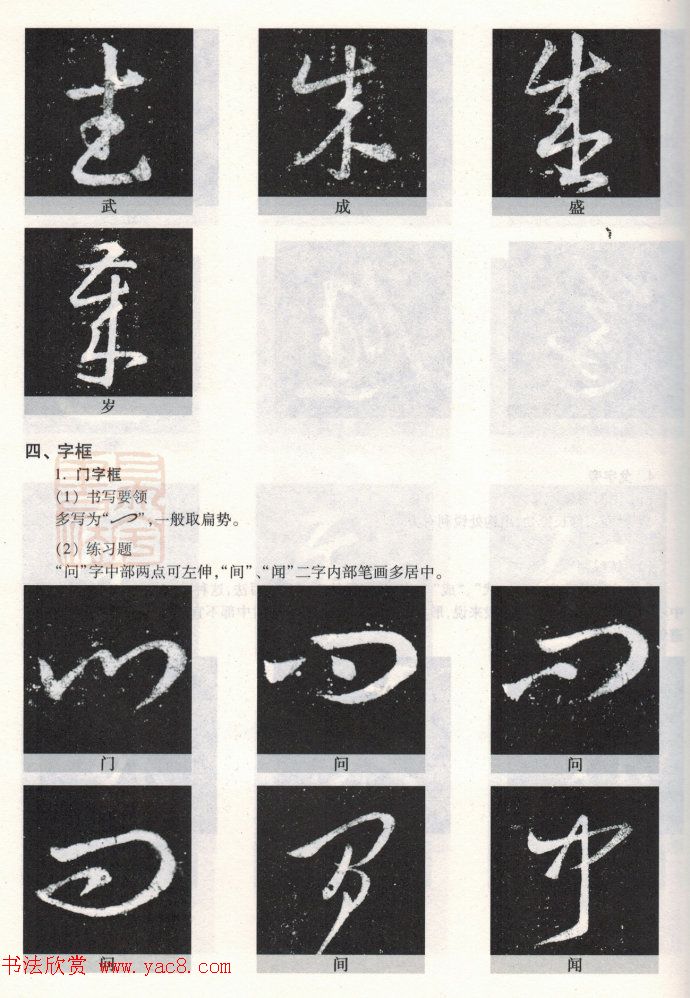 武 成 盛
岁
四、字框
1. 门字框
(1) 书写要领
多写为“”,一般取扁势。
(2) 练习题
“问”字中部两点可左伸,“间”、“闻”二字内部笔画多居中。
门 问 问
问 间 闻
书法欣赏 www.yac8.com